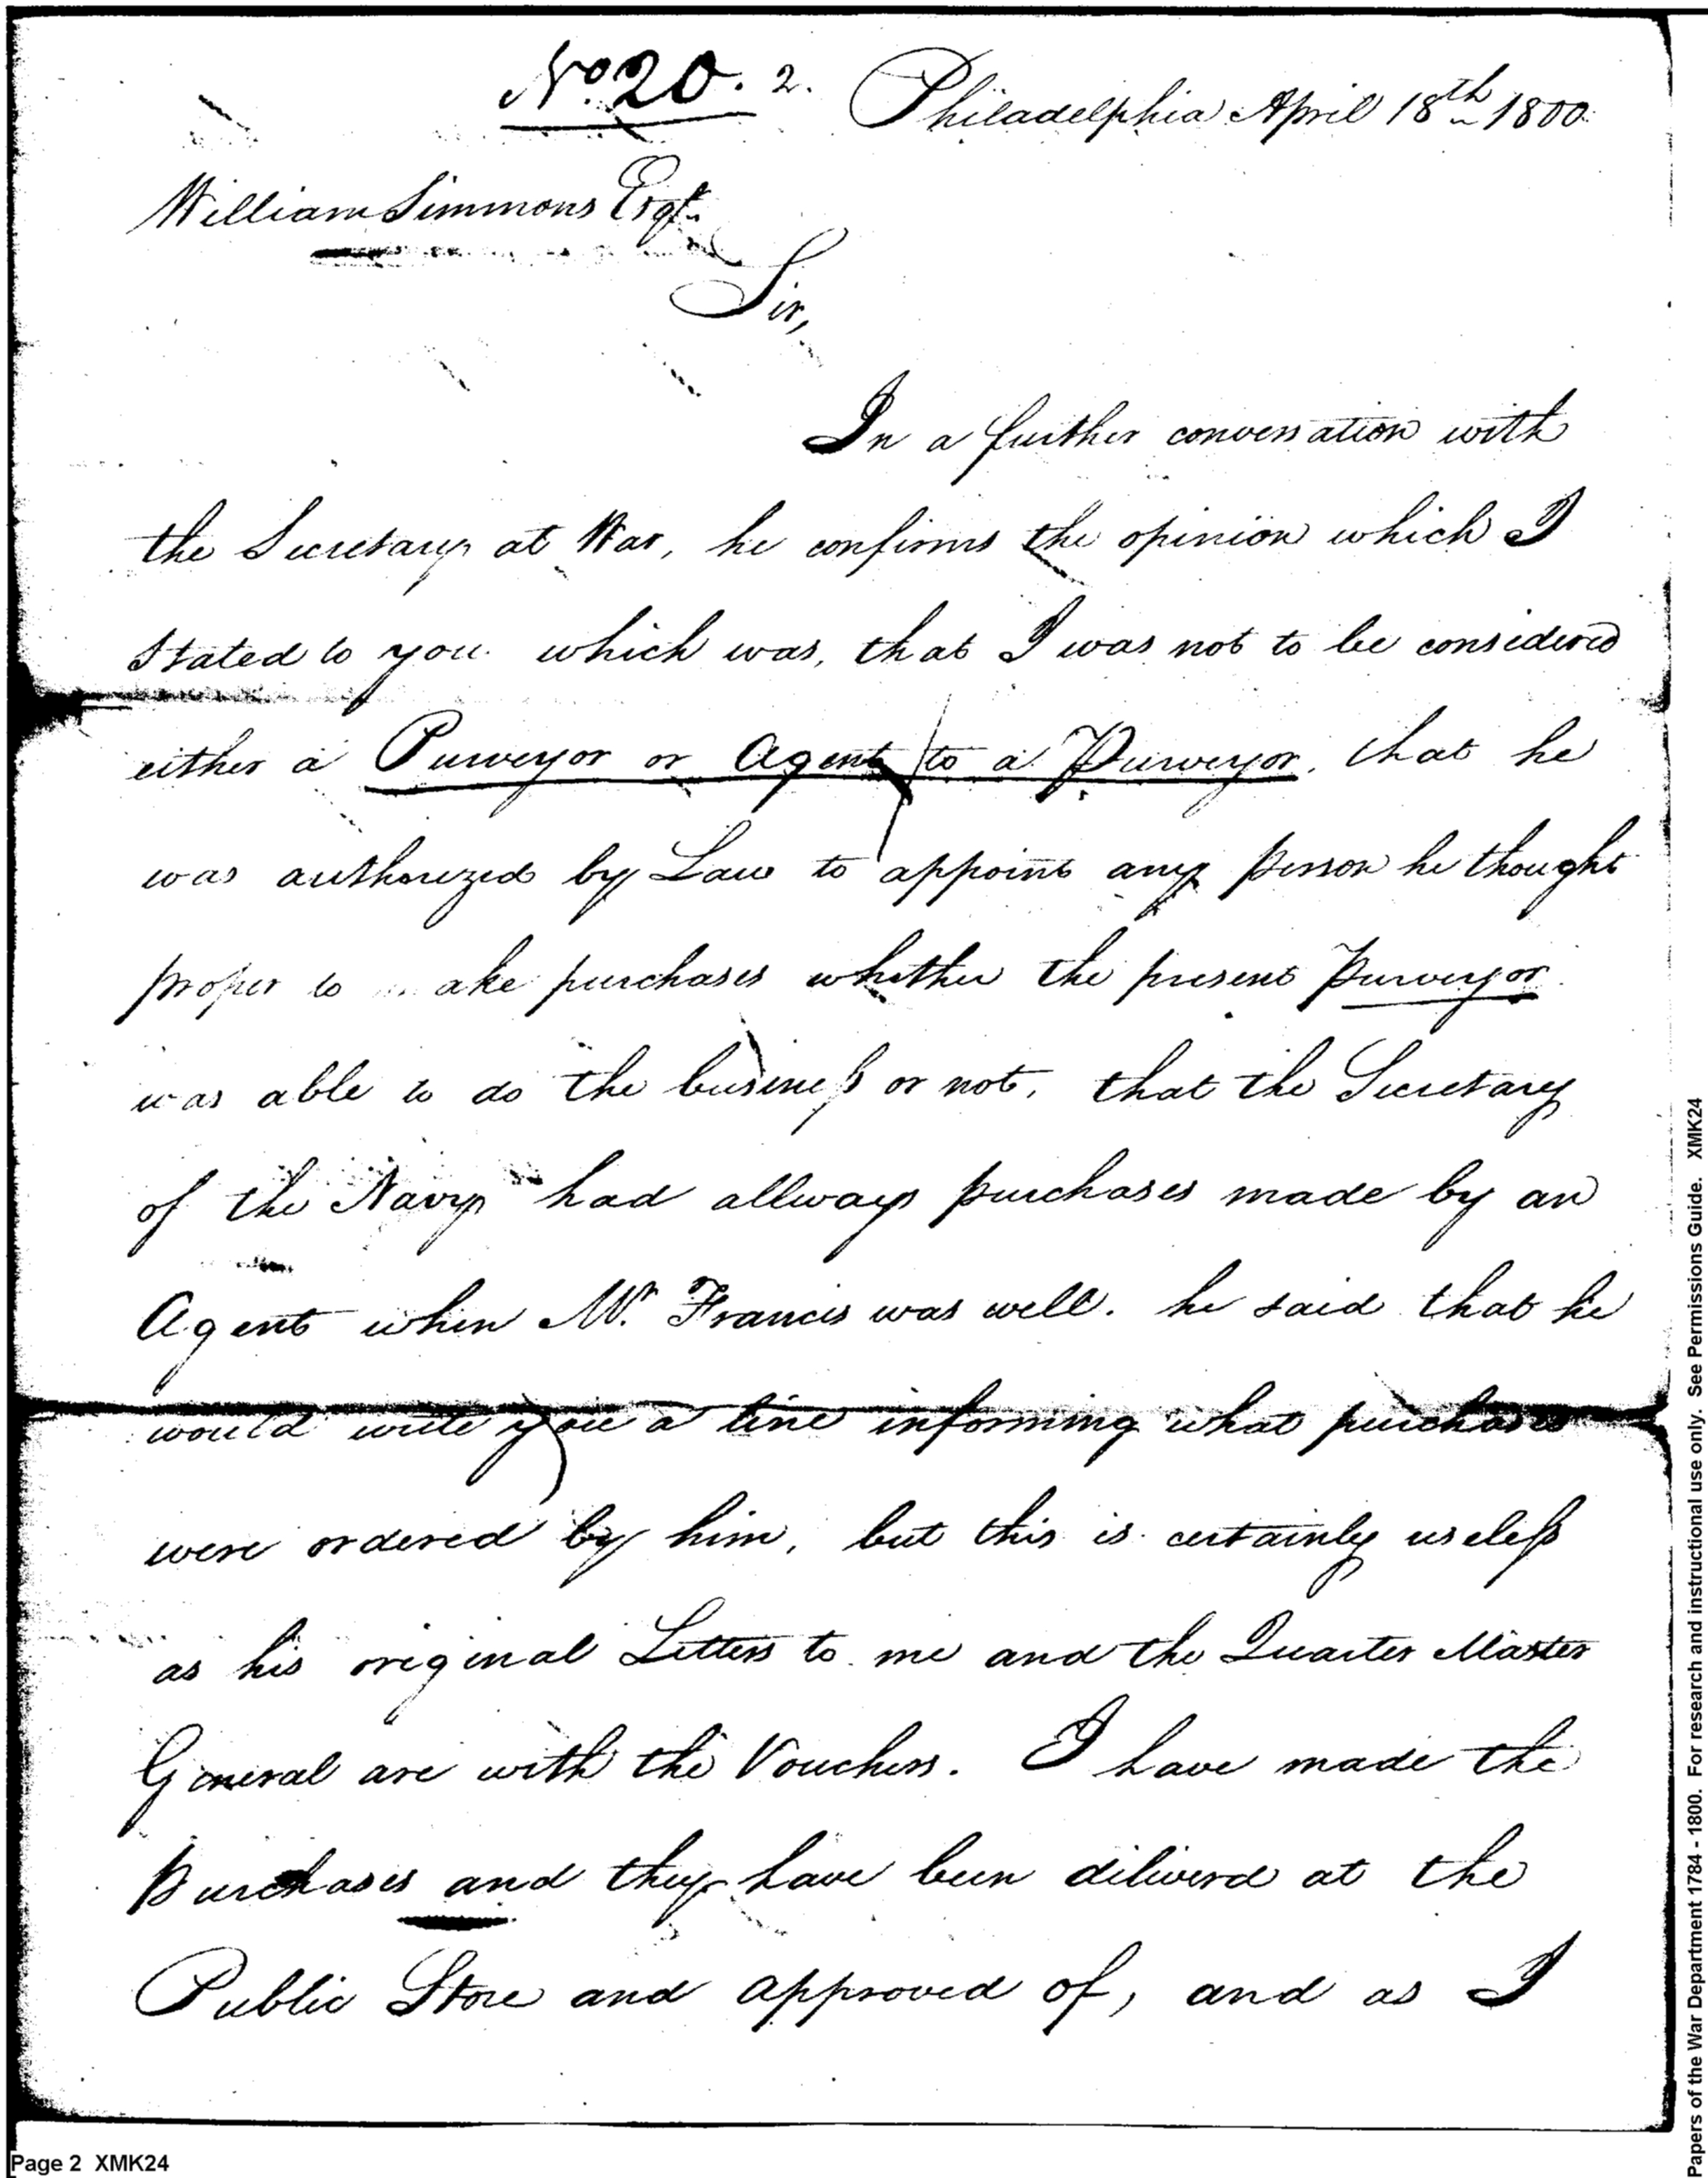 No. 20. 2. Philadelphia April 18th 1800.
William Simmons Esqr.
Sir,
In a further conversation with
the Secretary at War, he confirms the opinion which I
stated to you which was, that I was not to be considered
either a Purveyor or Agent to a Purveyor, that he
was authorized by Law to appoint any person he thought
proper to make purchases whether the present Purveyor
was able to do the business or not, that the Secretary
of the Navy had allways purchases made by an
Agent when Mr. Francis was well. he said that he
would write you a line informing what purchases
were ordered by him, but this is certainly useless
as his original Letters to me and the Quarter Master
General are with the Vouchers. I have made the
Purchases and they have been diliverd at the
Public Store and approved of, and as I
Page 2 XMK24
Papers of the War Department 1784 - 1800. For research and instructional use only. See Permissions Guide. XMK24